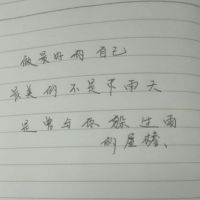 做最好的自己
最美的不是下雨天
是曾与你躲过雨
的屋檐、